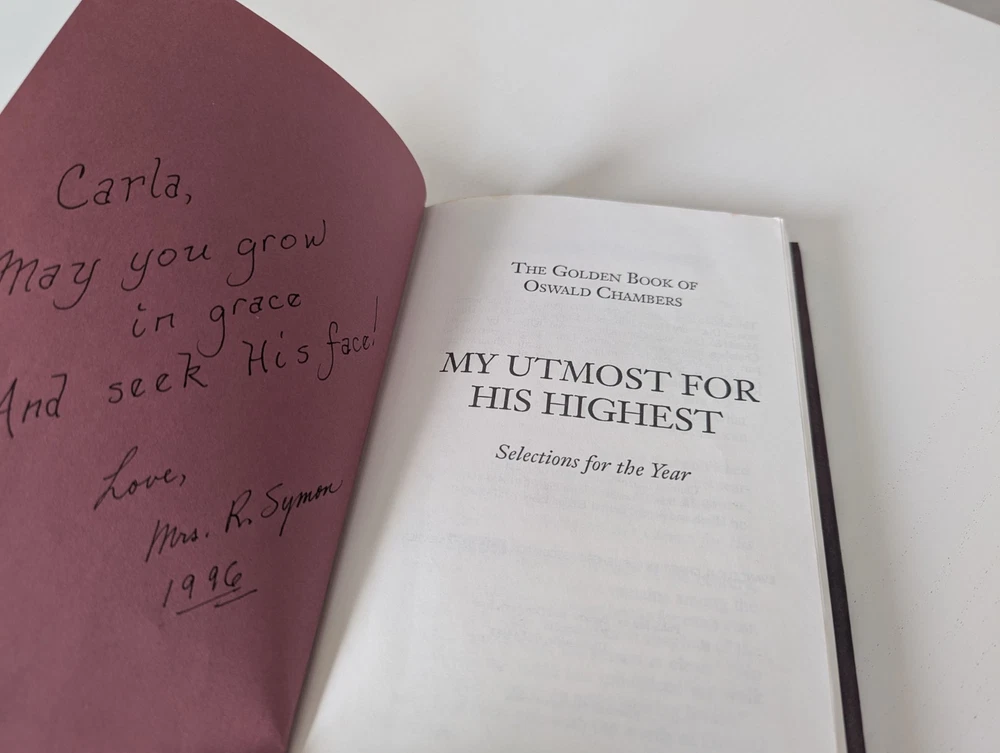 Carla,
May you grow
in grace
And seek His face!
Love,
Mrs. R. Symon
1996
THE GOLDEN BOOK OF
OSWALD CHAMBERS
MY UTMOST FOR
HIS HIGHEST
Selections for the Year